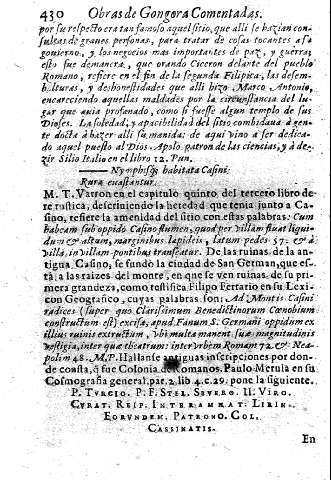 430 Obras de Gongora Comentadas.
por su respecto era tan famoso aquel sitio, que alli se hazian con-
sultas de graues personas, para tratar de cosas tocantes a su
gouierno, y los negocios mas importantes de paz, y guerra;
esto fue demanera, que orando Ciceron delante del pueblo
Romano, refiere en el fin de la segunda Filipica, las desem-
bolturas, y deshonestidades que alli hizo Marco Antonio,
encareciendo aquellas maldades por la circunstancia del lu-
gar que auia profanado, como si fuesse algun templo de sus
Dioses. La soledad, y apacibilidad del sitio combidaua à gen-
te docta à hazer alli su manida: de aqui vino a ser dedica-
do aquel puesto al Dios Apolo patron de las ciencias, y à de-
zir Silio Italico en el libro 12. Pun.
Nymphisq; habitata Casini
Rura euastantur.
M. T. Varron en el capitulo quinto del tercero libro de
re rustica, descriuiendo la heredad que tenia junto a Ca-
sino, refiere la amenidad del sitio con estas palabras: Cum
habeam sub oppido Casino flumen, quod per villam fluat liqui-
dum & altum, marginibus lapideis, latum pedes 57. & è
villa in villam pontibus transeatur. De las ruinas de la an-
tigua Casino, se fundò la ciudad de San German, que es-
tà a las raizes del monte, en que se ven ruinas de su pri-
mera grandeza, como testifica Filipo Ferrario en su Lexi-
con Geografico, cuyas palabras son: Ad Montis Casini
radices (super quo Clarissimum Benedictinorum Cœnobium
constructum est) excisa, apud Fanum S. Germani oppidum ex
illius ruinis extructum, vbi multa manent suæ magnitudinis
vestigia, inter quæ theatrum: inter vrbem Romam 72. & Nea-
polim 48. M. P. Hallanse antiguas inscripciones por don-
de consta, q̃ fue Colonia de Romanos. Paulo Merula en su
Cosmografia general, par. 2. lib 4. c. 29. pone la siguiente.
P. Tvrcio. P. F. Stel. Severo. II. Viro.
Cvrat. Reip. Interamnat. Lirin.
Eorvndem. Patrono. Col.
Cassinatis.
En